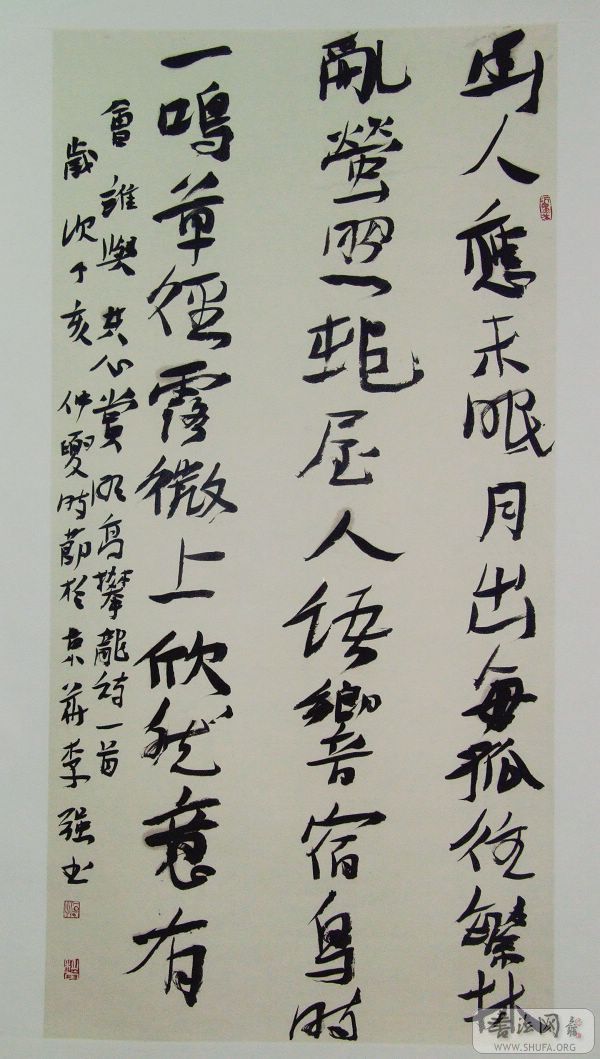 幽人應未眠月出每孤往繁林
亂螢照邨屋人語響宿鳥時
一鳴草徑露微上欣然意有
會誰與共心賞明高攀龍詩一首
歲次丁亥仲夏時節於京華李强书
书法网
WWW.SHUFA.ORG